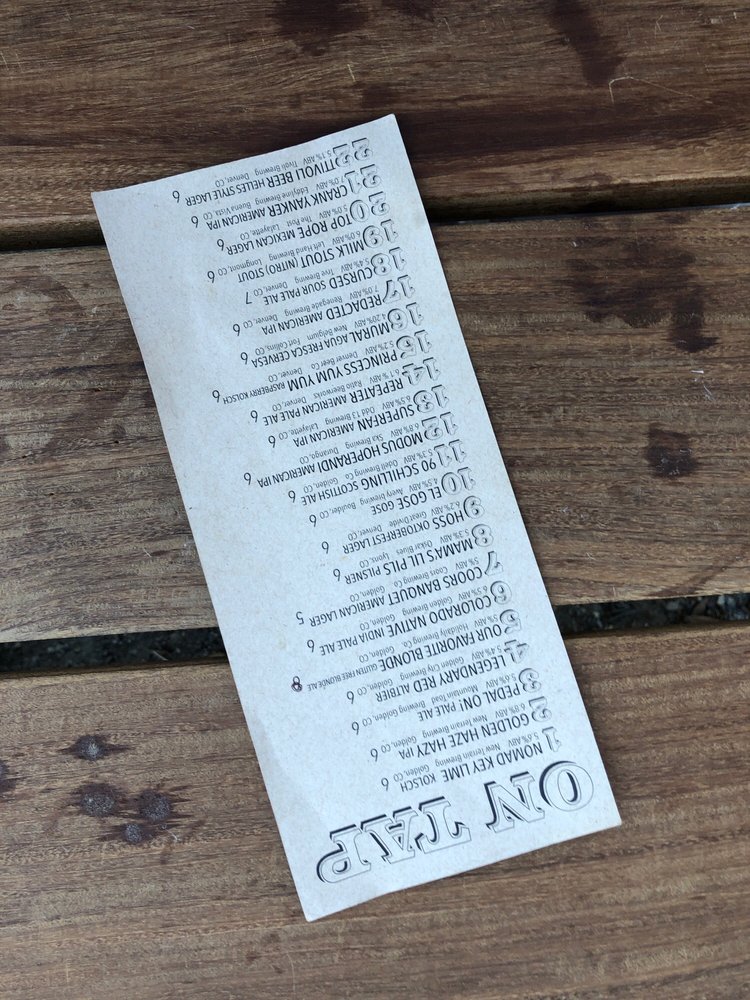 ON TAP
1 NOMAD KEY LIME KOLSCH 6
5.6% ABV New Terrain Brewing Golden, CO
2 GOLDEN HAZE HAZY IPA 6
6.8% ABV New Terrain Brewing Golden, CO
3 PEDAL ON! PALE ALE 6
5.6% ABV Mountain Toad Brewing Golden, CO
4 LEGENDARY RED ALTBIER 6
5.4% ABV Golden City Brewing Golden, CO
5 OUR FAVORITE BLONDE GLUTEN FREE BLONDE ALE 8
5% ABV Holidaily Brewing Co. Golden, CO
6 COLORADO NATIVE INDIA PALE ALE 6
6.5% ABV Golden Brewing Golden, CO
7 COORS BANQUET AMERICAN LAGER 5
5% ABV Coors Brewing Co. Golden, CO
8 MAMA'S LIL PILS PILSNER 6
5.3% ABV Oskar Blues Lyons, CO
9 HOSS OKTOBERFEST LAGER 6
6.2% ABV Great Divide Denver, CO
10 EL GOSE GOSE 6
4.5% ABV Avery brewing Boulder, CO
11 90 SCHILLING SCOTTISH ALE 6
5.3% ABV Odell Brewing Co. Golden, CO
12 MODUS HOPERANDI AMERICAN IPA 6
6.8% ABV Ska Brewing Durango, CO
13 SUPERFAN AMERICAN IPA 6
6.5% ABV Odd 13 Brewing Lafayette, CO
14 REPEATER AMERICAN PALE ALE 6
6.1% ABV Ratio Beerworks Denver, CO
15 PRINCESS YUM YUM RASPBERRY KOLSCH 6
5.2% ABV Denver Beer Co Denver, CO
16 MURAL AGUA FRESCA CERVESA 6
4.20% ABV New Belgium Fort Collins, CO
17 REDACTED AMERICAN IPA 6
7.0% ABV Renegade Brewing Denver, CO
18 CURSED SOUR PALE ALE 7
5.4% ABV Tire Brewing Denver, CO
19 MILK STOUT (NITRO) STOUT 6
6.0% ABV Left Hand Brewing Longmont, CO
20 TOP ROPE MEXICAN LAGER 6
5.0% ABV The Post Lafayette, CO
21 CRANK YANKER AMERICAN IPA 6
7.0% ABV Eddyline Brewing Buena Vista, CO
22 TIVOLI BEER HELLES STYLE LAGER 6
5.1% ABV Tivoli Brewing Denver, CO